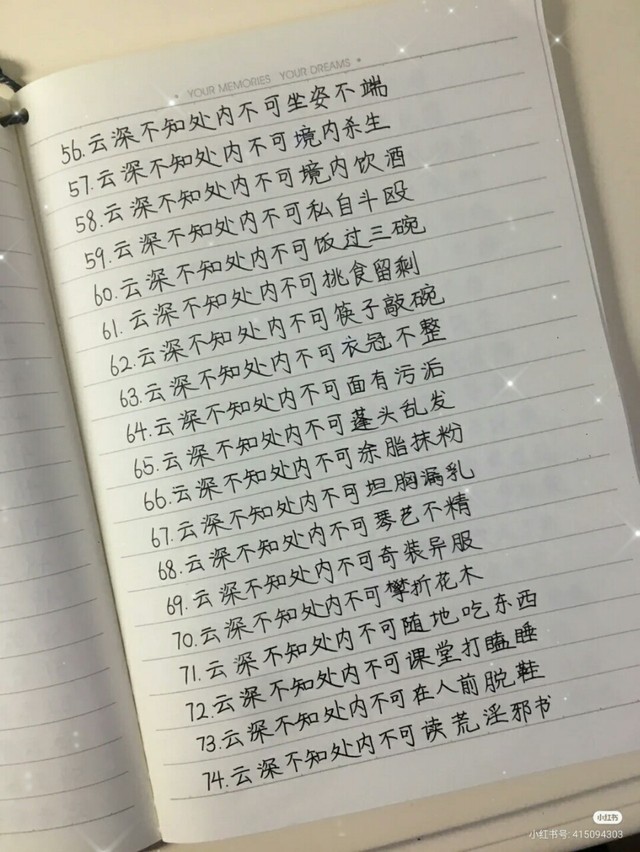 YOUR MEMORIES YOUR DREAMS
56.云深不知处内不可坐姿不端
57.云深不知处内不可境内杀生
58.云深不知处内不可境内饮酒
59.云深不知处内不可私自斗殴
60.云深不知处内不可饭过三碗
61.云深不知处内不可挑食留剩
62.云深不知处内不可筷子敲碗
63.云深不知处内不可衣冠不整
64.云深不知处内不可面有污垢
65.云深不知处内不可蓬头乱发
66.云深不知处内不可涂脂抹粉
67.云深不知处内不可坦胸漏乳
68.云深不知处内不可琴艺不精
69.云深不知处内不可奇装异服
70.云深不知处内不可攀折花木
71.云深不知处内不可随地吃东西
72.云深不知处内不可课堂打瞌睡
73.云深不知处内不可在人前脱鞋
74.云深不知处内不可读荒淫邪书
小红书
小红书号: 415094303